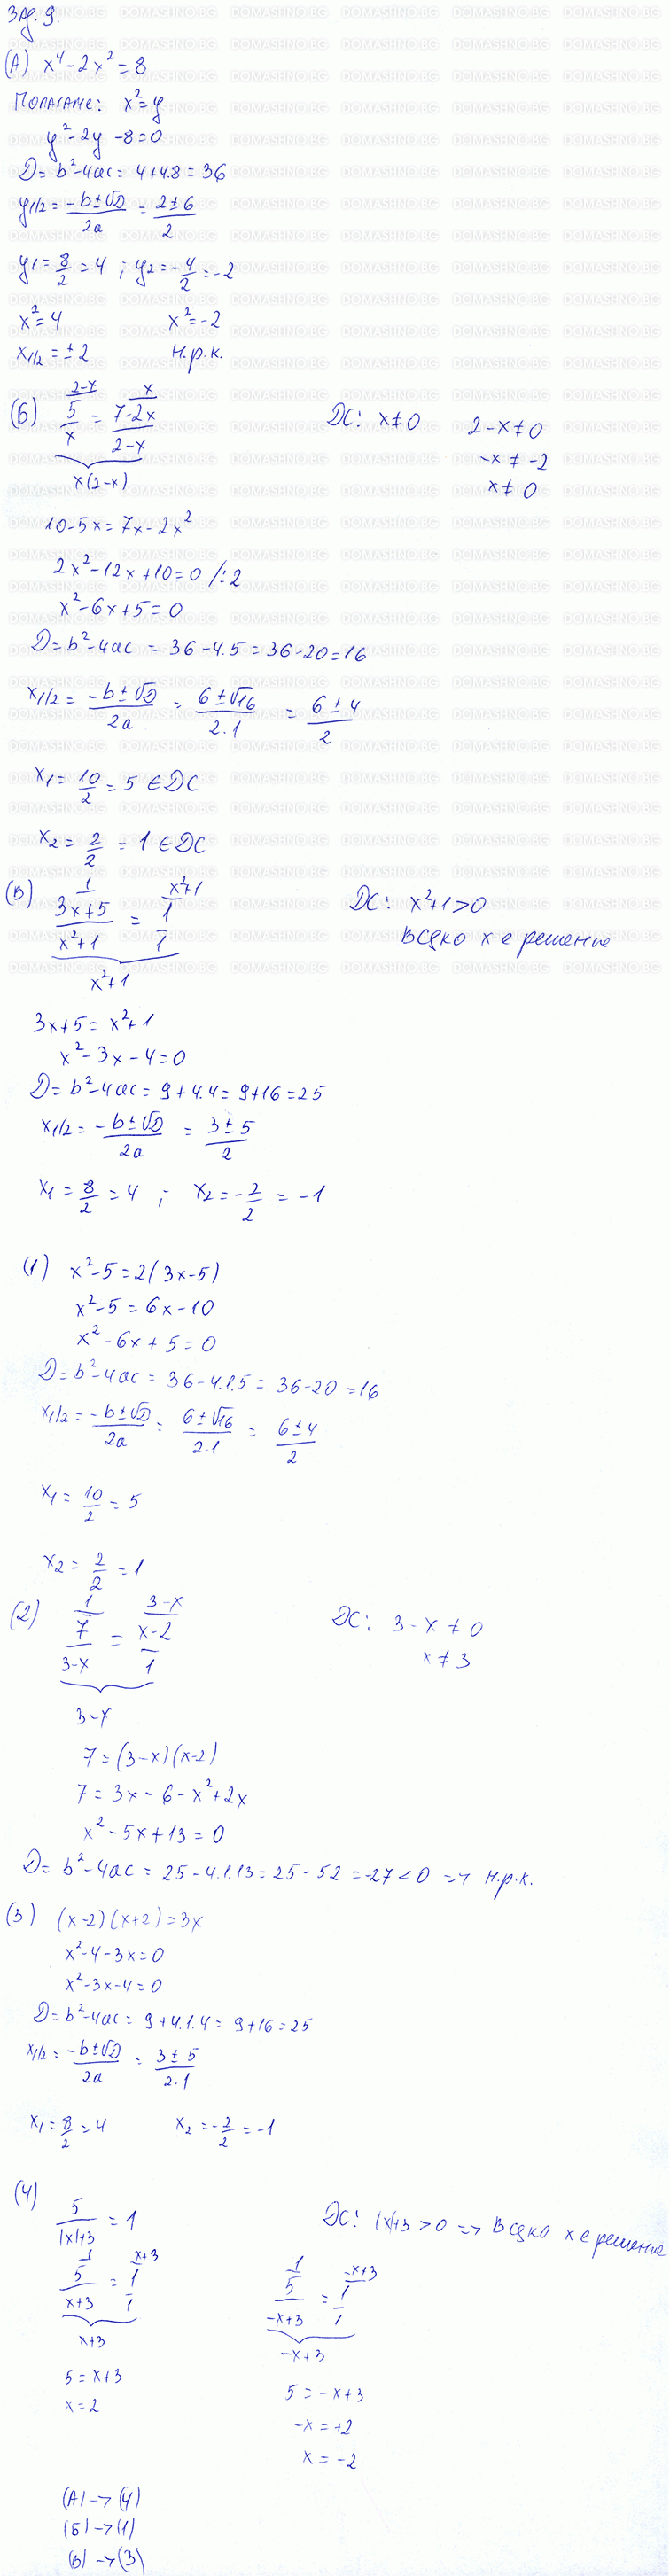 Зад. 9.
(А) x⁴-2x²=8
Полагаме: x²=y
y²-2y-8=0
D=b²-4ac=4+4.8=36
y1/2=(-b±√D)/2a=(2±6)/2
y1=8/2=4; y2=-4/2=-2
x²=4 x²=-2
x1/2=±2 н.р.к.
(Б) 5/x=(7-2x)/(2-x) ДС: x≠0 2-x≠0
2-x x -x≠-2
x(2-x) x≠0
10-5x=7x-2x²
2x²-12x+10=0 /:2
x²-6x+5=0
D=b²-4ac=36-4.5=36-20=16
x1/2=(-b±√D)/2a=(6±√16)/2.1=(6±4)/2
x1=10/2=5 ∈ДС
x2=2/2=1 ∈ДС
(В) (3x+5)/(x²+1)=1/1 ДС: x²+1>0
1 x²+1 всяко x е решение
x²+1
3x+5=x²+1
x²-3x-4=0
D=b²-4ac=9+4.4=9+16=25
x1/2=(-b±√D)/2a=(3±5)/2
x1=8/2=4; x2=-2/2=-1
(1) x²-5=2(3x-5)
x²-5=6x-10
x²-6x+5=0
D=b²-4ac=36-4.1.5=36-20=16
x1/2=(-b±√D)/2a=(6±√16)/2.1=(6±4)/2
x1=10/2=5
x2=2/2=1
(2) 7/(3-x)=(x-2)/1 ДС: 3-x≠0
1 3-x x≠3
3-x
7=(3-x)(x-2)
7=3x-6-x²+2x
x²-5x+13=0
D=b²-4ac=25-4.1.13=25-52=-27<0 => н.р.к.
(3) (x-2)(x+2)=3x
x²-4-3x=0
x²-3x-4=0
D=b²-4ac=9+4.1.4=9+16=25
x1/2=(-b±√D)/2a=(3±5)/2.1
x1=8/2=4 x2=-2/2=-1
(4) 5/(|x|+3)=1 ДС: |x|+3>0 => всяко x е решение
5/(x+3)=1/1 5/(-x+3)=1/1
1 x+3 1 -x+3
x+3 -x+3
5=x+3 5=-x+3
x=2 -x=+2
x=-2
(А)->(4)
(Б)->(1)
(В)->(3)
DOMASHNO.BG